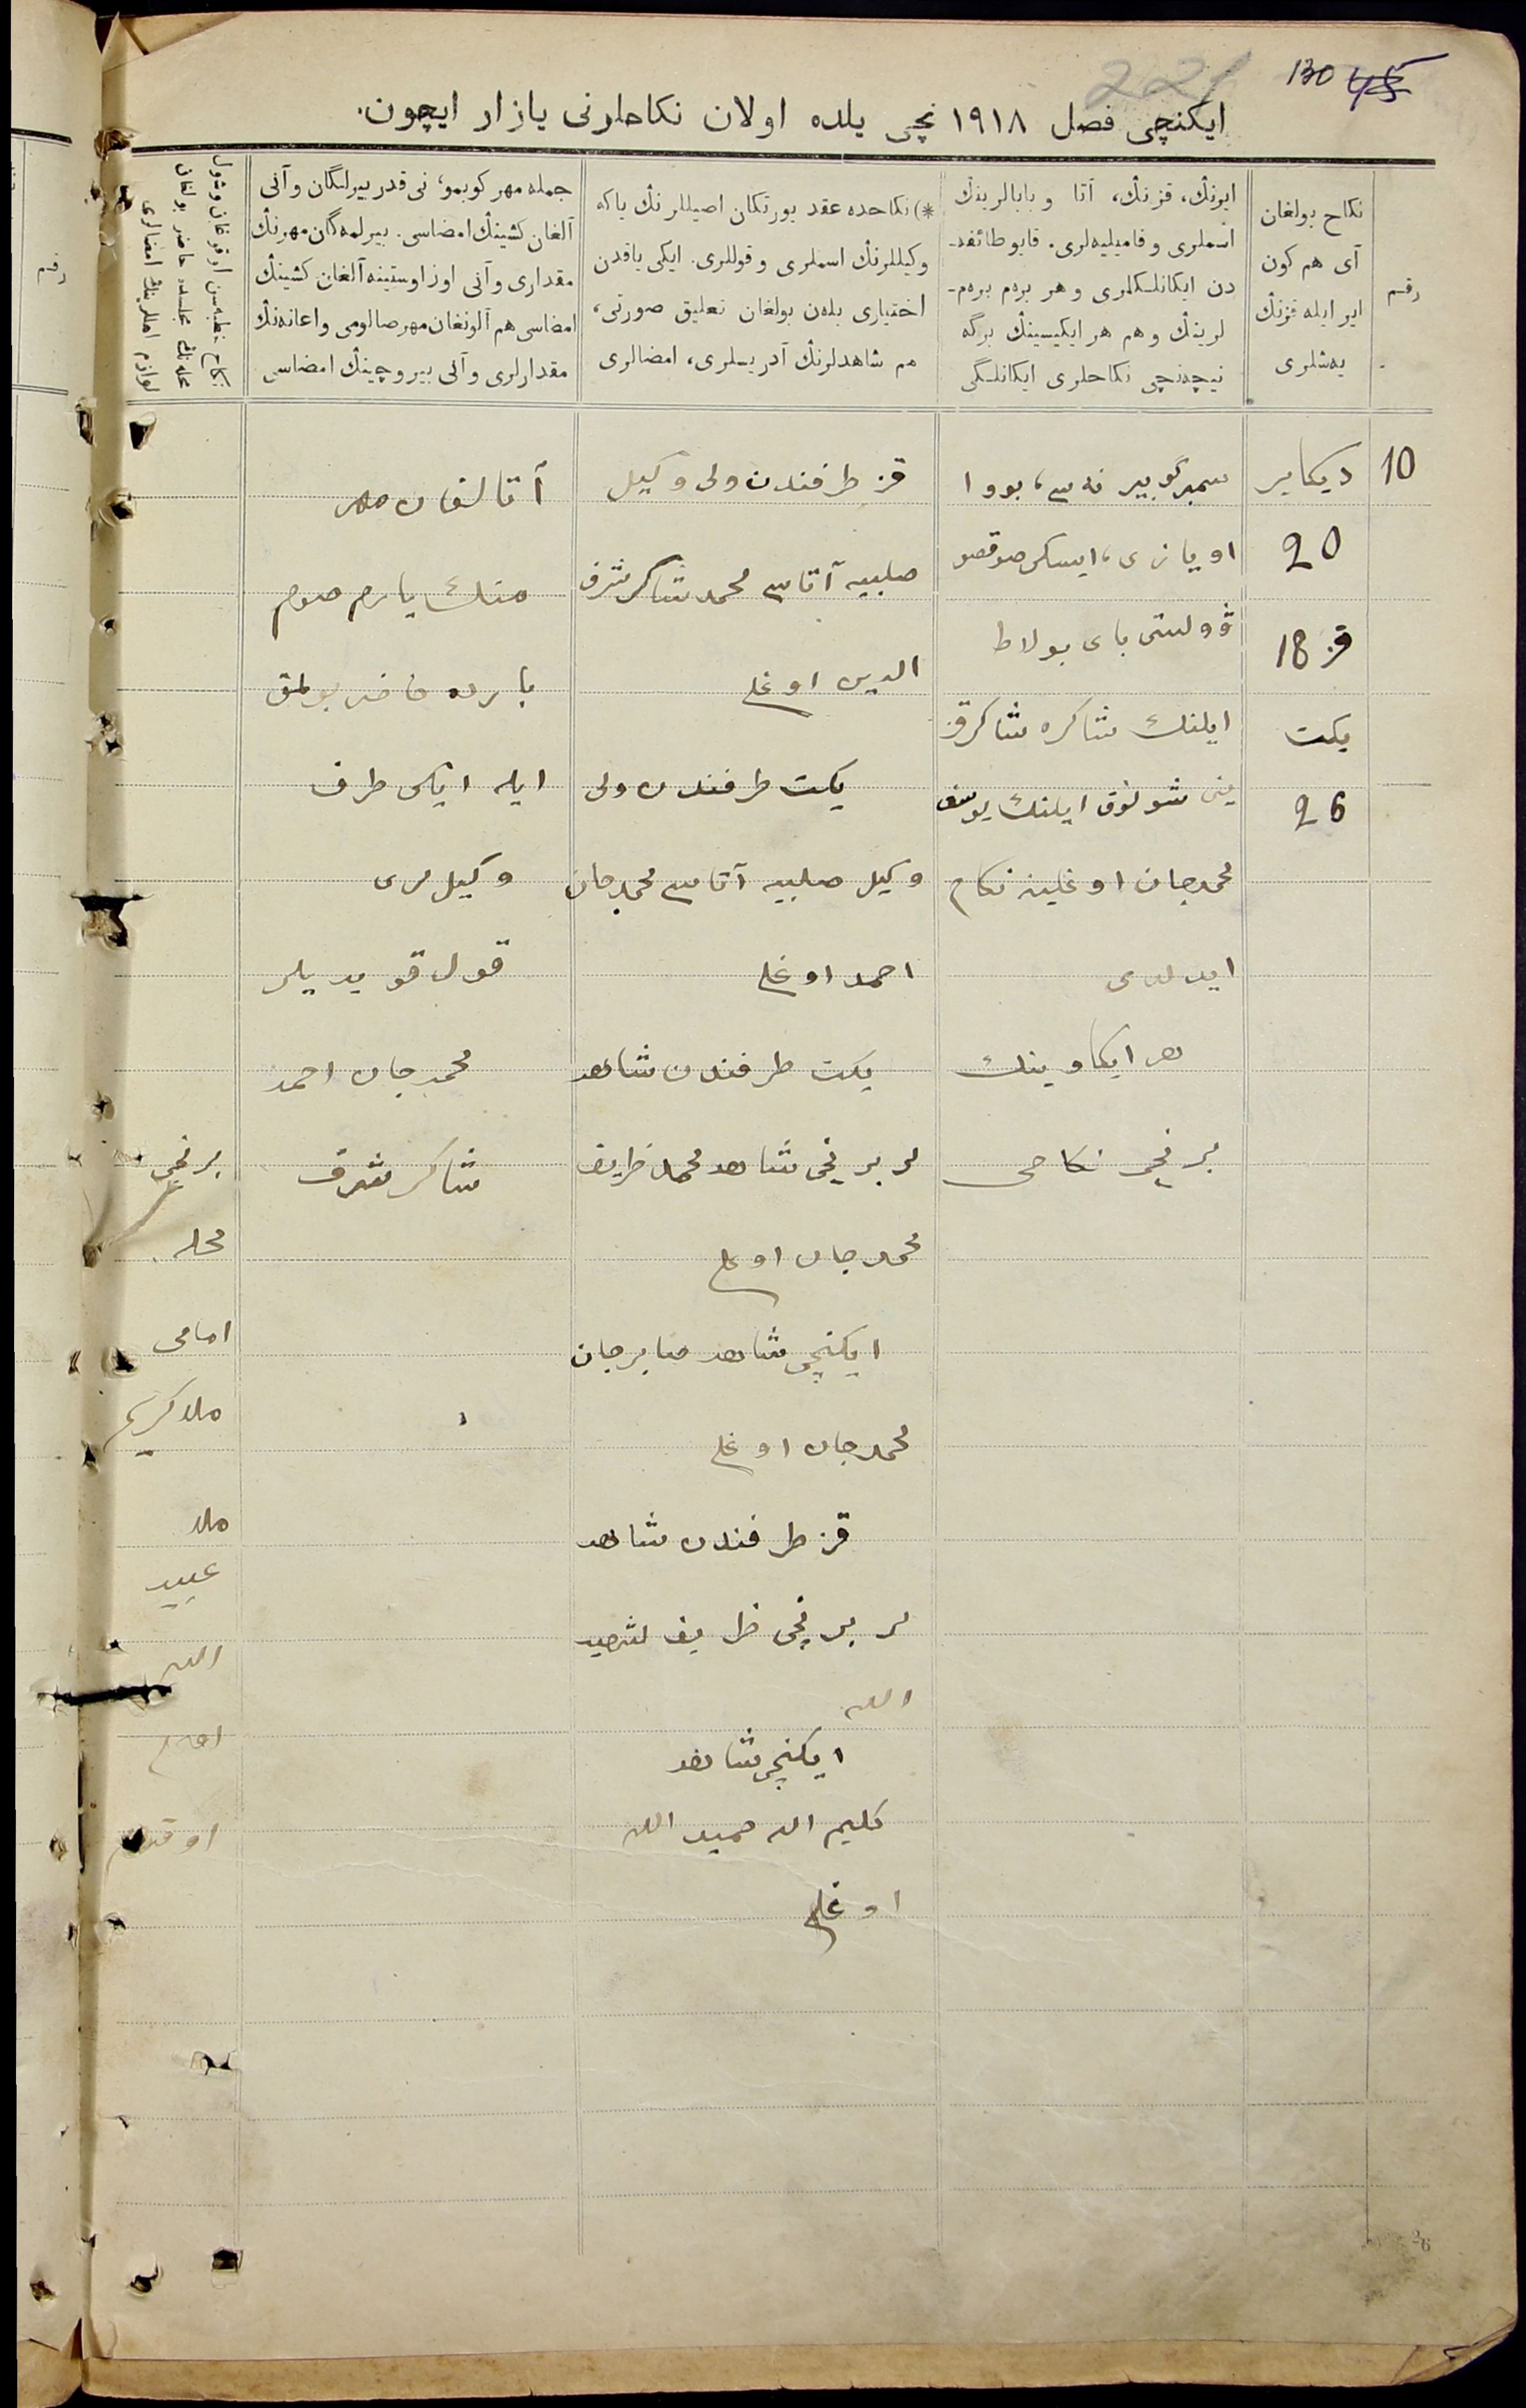 130 45
221
ايكنچی فصل ١٩١٨ نچی يلده اولان نكاحلرنی يازار ايچون.
رقم
نكاح بولغان
آی هم كون
اير ايله قزنڭ
يەشلری
ايرنڭ، قزنڭ، آتا و بابالرينڭ
اسملری و فاميليەلری. قايو طائفە-
دن ايكانلكلری و هر برەم برەم-
لرينڭ و هم هر ايكيسينڭ برگە
نيچەنچی نكاحلری ايكانلگی
*) نكاحده عقد يورتكان اصيللرنڭ ياكە
وكيللرنڭ اسملری و قوللری. ايكی ياقدن
اختياری بلەن بولغان تعليق صورتی،
هم شاهدلرنڭ آدريسلری، امضالری
جمله مهر كوبمو، نی قدر بيرلگان و آنی
آلغان كشينڭ امضاسی. بيرلمەگان مهرنڭ
مقداری و آنی اوز اوستينه آلغان كشينڭ
امضاسی هم آلونغان مهر صالومی و اعانەنڭ
مقدارلری و آنی بيروچينڭ امضاسی
نكاح خطبەسن اوقوغان و شول
مجلسده حاضر بولغان
لوازم اهللرينڭ امضالری
رقم
10
ديكابر
20
قز 18
يكت
26
سمبر گوبيرنەسی، بووا
اويازی، ايسكی صوقصو
ۋولستی بای بولاط
ايلنڭ شاكره شاكر قز
ينی ايلنڭ يوسف
محمدجان اوغلينه نكاح
ايدلدی
هر ايكاوينڭ
برنچی نكاحی
قز طرفندن ولی وكيل
صلبيه آتاسی محمد شاكر شرف
الدين اوغلی
يكت طرفندن ولی
وكيل صلبيه آتاسی محمدجان
احمد اوغلی
يكت طرفندن شاهد
لر برنچی شاهد محمد ظريف
محمدجان اوغلی
ايكنچی شاهد صابرجان
محمدجان اوغلی
قز طرفندن شاهد
لر برنچی ظريف
الله
ايكنچی شاهد
كليم الله حميد الله
اوغلی
آتالغان مهر
منك يارم صوم
بارده حاضر بولمق
ايله ايكی طرف
وكيللری
قول قويديلر
محمدجان احمد
شاكر شرف
برنچی
محله
امامی
ملا كريم
ملا
عبيد
الله
26